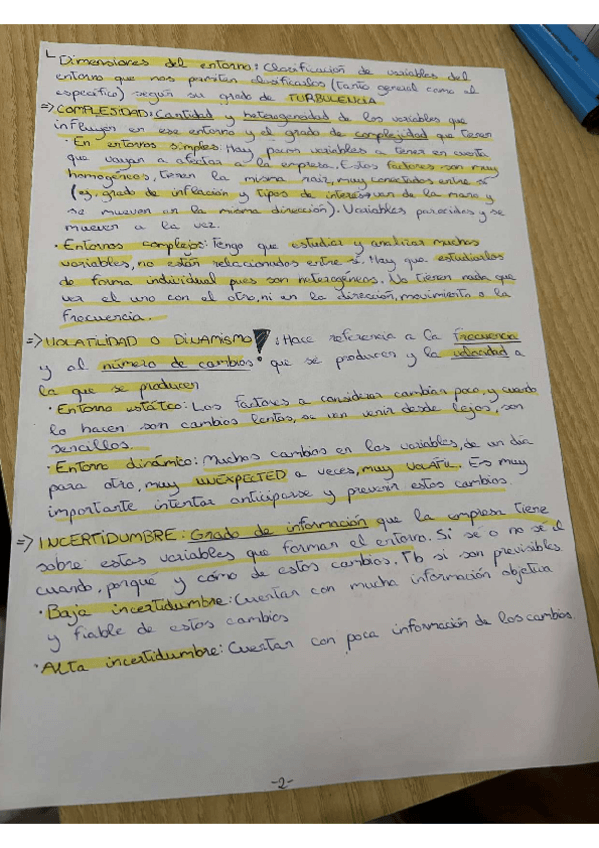 Dimensiones del entorno: Clasificación de variables del
entorno que nos permitan clasificarlos (tanto general como el
específico) según su grado de TURBULENCIA
=> COMPLEJIDAD: Cantidad y heterogeneidad de las variables que
influyen en ese entorno y el grado de complejidad que tienen
· En entornos simples: Hay pocas variables a tener en cuenta
que vayan a afectar a la empresa. Estos factores son muy
homogéneos, tienen la misma raíz, muy conectados entre sí
(ej, grado de inflación y tipos de interés van de la mano y
se mueven en la misma dirección). Variables parecidas y se
mueven a la vez.
· Entornos complejos: Tengo que estudiar y analizar muchas
variables, no están relacionados entre sí. Hay que estudiarlos
de forma individual pues son heterogéneos. No tienen nada que
ver el uno con el otro, ni en la dirección, movimiento o la
frecuencia.
=> VOLATILIDAD O DINAMISMO ! : Hace referencia a la frecuencia
y al número de cambios que se producen y la velocidad a
la que se producen
· Entorno estático: Los factores a considerar cambian poco, y cuando
lo hacen son cambios lentos, se ven venir desde lejos, son
sencillos.
· Entorno dinámico: Muchos cambios en las variables, de un día
para otro, muy UNEXPECTED a veces, muy VOLÁTIL. Es muy
importante intentar anticiparse y prevenir estos cambios.
=> INCERTIDUMBRE: Grado de información que la empresa tiene
sobre estas variables que forman el entorno. Si sé o no sé el
cuando, porqué y cómo de estos cambios. Tb si son previsibles
· Baja incertidumbre: Cuentan con mucha información objetiva
y fiable de estos cambios
· ALTA incertidumbre: Cuentan con poca información de los cambios.
-2-